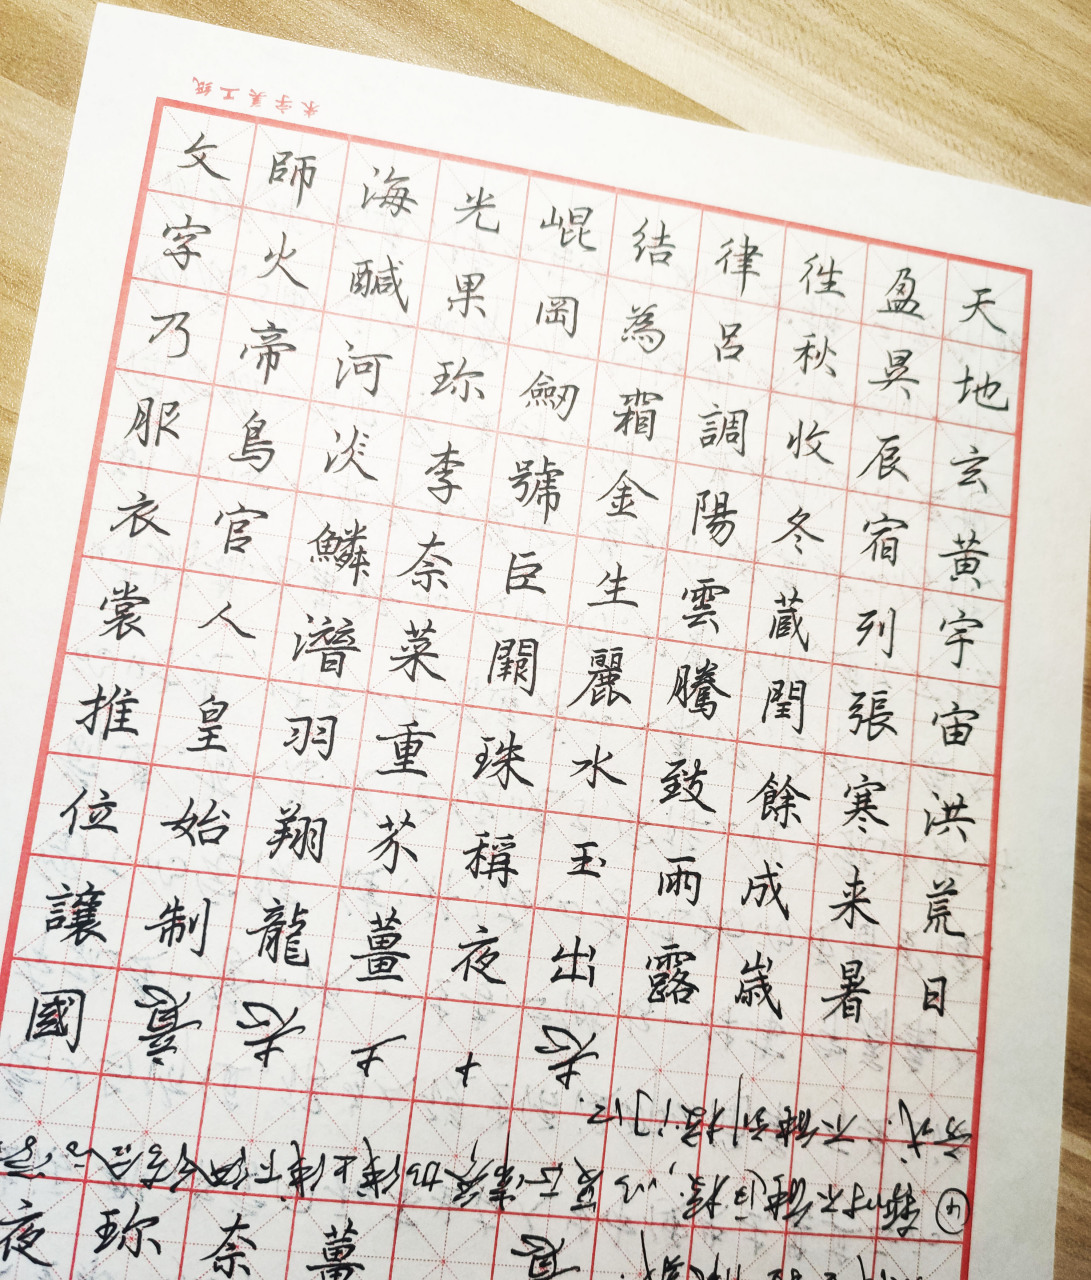 米字美工纸
天地玄黄宇宙洪荒日
盈昃辰宿列張寒来暑
徃秋收冬蔵閏餘成歳
律呂調陽雲騰致雨露
結為霜金生麗水玉出
崐岡劒號巨闕珠稱夜
光果珎李奈菜重芥薑
海鹹河淡鱗潛羽翔龍
師火帝鳥官人皇始制
文字乃服衣裳推位讓國
夜珎奈薑